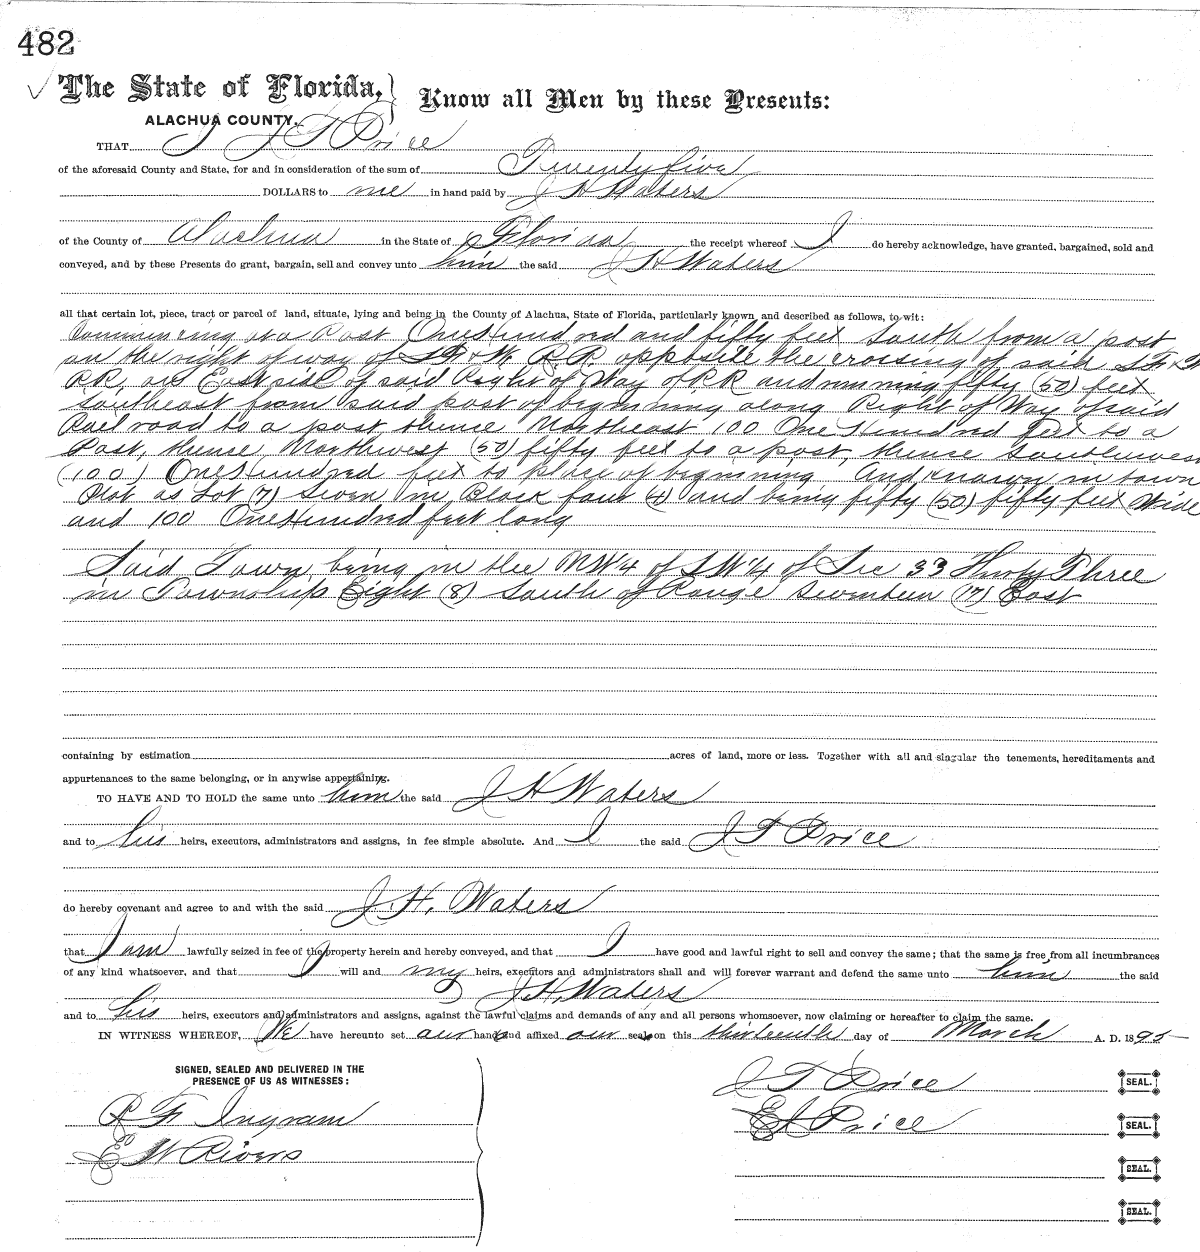 482
The State of Florida,
ALACHUA COUNTY.
Know all Men by these Presents:
THAT I J T Price
of the aforesaid County and State, for and in consideration of the sum of Twenty five
DOLLARS to me in hand paid by J H Waters
of the County of Alachua in the State of Florida the receipt whereof I do hereby acknowledge, have granted, bargained, sold and
conveyed, and by these Presents do grant, bargain, sell and convey unto him the said J H Waters
all that certain lot, piece, tract or parcel of land, situate, lying and being in the County of Alachua, State of Florida, particularly known and described as follows, to wit:
Commencing at a Post One Hundred and fifty feet South from a post
on the right of way of S F & W R.R. opposite the crossing of said S F & W
RR, on East side of said Right of Way of RR and running fifty (50) feet
Southeast from said post of beginning along Right of Way of said
Rail road to a post thence Northeast 100 One Hundred feet to a
Post, thense Northwest (50) fifty feet to a post, thense Southwest
(100) One Hundred feet to place of beginning And known in town
Plot as Lot (7) Seven in Block four (4) and being fifty (50) fifty feet Wide
and 100 One Hundred feet long
Said Town being in the NW¼ of SW¼ of Sec 33 Thirty Three
in Township Eight (8) South of Range Seventeen (17) East
containing by estimation acres of land, more or less. Together with all and singular the tenements, hereditaments and
appurtenances to the same belonging, or in anywise appertaining.
TO HAVE AND TO HOLD the same unto him the said J H Waters
and to his heirs, executors, administrators and assigns, in fee simple absolute. And I the said J T Price
do hereby covenant and agree to and with the said J. H. Waters
that I am lawfully seized in fee of the property herein and hereby conveyed, and that I have good and lawful right to sell and convey the same; that the same is free from all incumbrances
of any kind whatsoever, and that I will and my heirs, executors and administrators shall and will forever warrant and defend the same unto him the said
J. H. Waters
and to his heirs, executors and administrators and assigns, against the lawful claims and demands of any and all persons whomsoever, now claiming or hereafter to claim the same.
IN WITNESS WHEREOF, We have hereunto set our hand and affixed our seal on this thirteenth day of March A. D. 1895
SIGNED, SEALED AND DELIVERED IN THE
PRESENCE OF US AS WITNESSES:
J T Price SEAL.
R F Ingram
Price SEAL.
E W Rivers
SEAL.
SEAL.